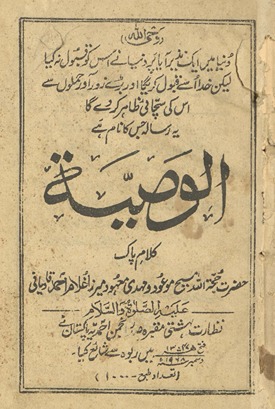 (روحی اللہ)
دنیا میں ایک نذیر آیا پر دنیا نے اس کو قبول نہ کیا
لیکن خدا اسے قبول کریگا اور بڑے زور آور حملوں سے
اس کی سچائی ظاہر کر دے گا
یہ رسالہ جس کا نام ہے
الوصیة
کلام پاک
حضرت حجۃ اللہ مسیح موعود و مہدی معہود میرزا غلام احمد قادیانی
علیہ الصلوٰة والسلام
نظارت بہشتی مقبرہ صدر انجمن احمدیہ پاکستان نے
دسمبر ۱۹۶۸ میں ربوہ سے شائع کیا
(تعداد طبع ۱۰۰۰)